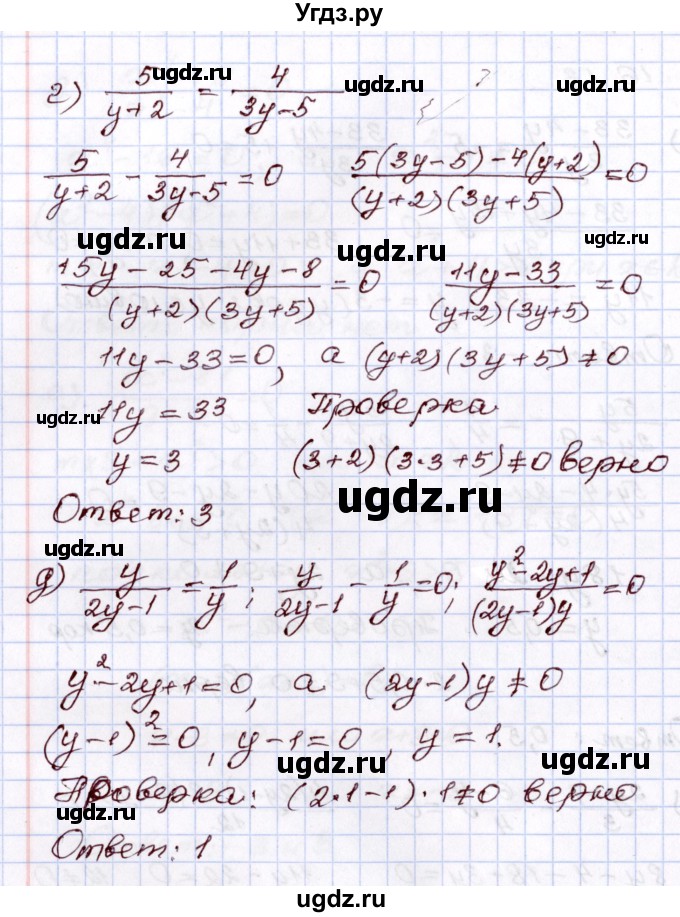 Угдз.ру
ugdz.ru ugdz.ru
г) 5/(y+2) = 4/(3y-5)
5/(y+2) - 4/(3y-5) = 0   (5(3y-5)-4(y+2))/((y+2)(3y+5)) = 0
ugdz.ru ugdz.ru
(15y-25-4y-8)/((y+2)(3y+5)) = 0   (11y-33)/((y+2)(3y+5)) = 0
11y-33=0, а (y+2)(3y+5)≠0
ugdz.ru 11y=33   Проверка
y=3   (3+2)(3·3+5)≠0 верно
Ответ: 3 ugdz.ru
ugdz.ru ugdz.ru
д) y/(2y-1) = 1/y; y/(2y-1) - 1/y = 0; (y²-2y+1)/((2y-1)y) = 0
y²-2y+1=0, а (2y-1)y≠0
(y-1)²=0, y-1=0, y=1.
ugdz.ru ugdz.ru
Проверка: (2·1-1)·1≠0 верно
Ответ: 1
ugdz.ru